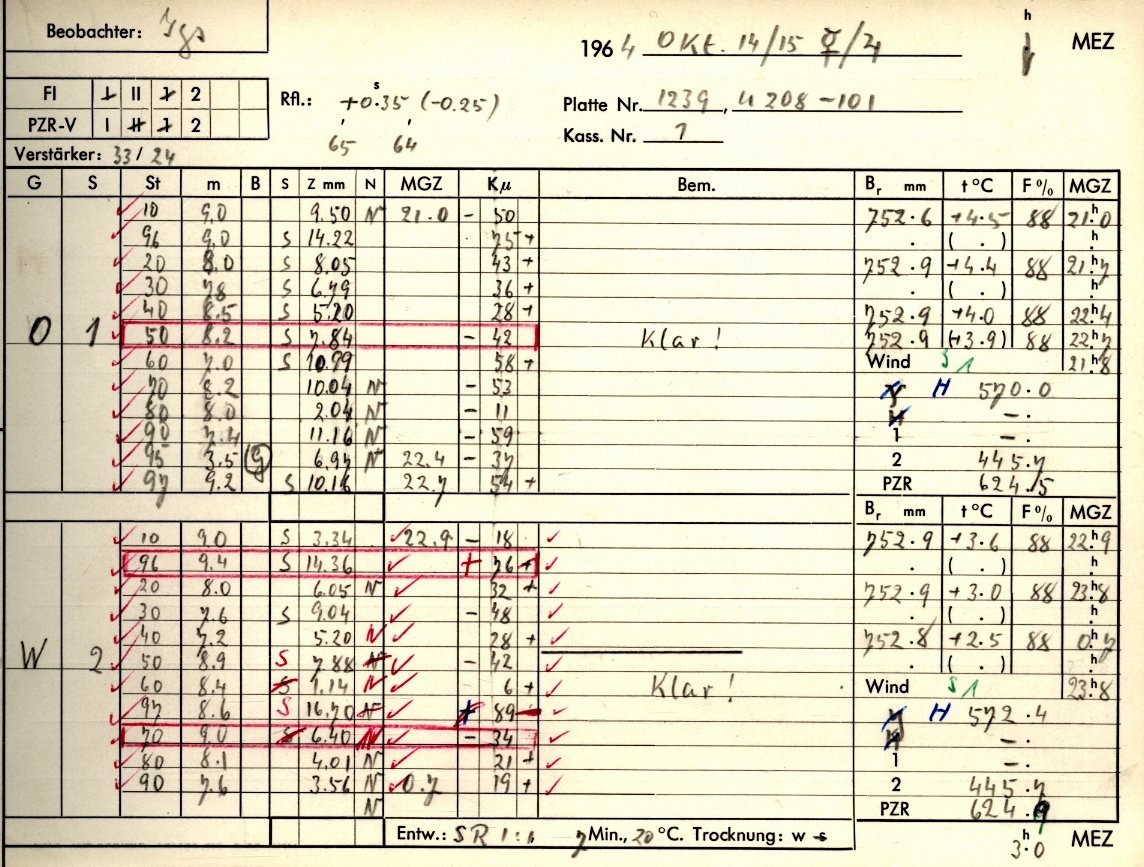 Beobachter: Igs
1964 OKt. 14/15 ☿/♃ h MEZ
FI 1 II 1 2
PZR-V 1 II 1 2
Rfl.: +0.ˢ35 (-0.25)
65 64
Platte Nr. 1239, U 208-101
Kass. Nr. 7
Verstärker: 33/24
G S St m B S Z mm N MGZ Kμ Bem. Br mm t °C F % MGZ
O 1
10 9.0 9.50 N 21.0 - 50
96 9.0 S 14.22 75 +
20 8.0 S 8.05 43 +
30 7.8 S 6.79 36 +
40 8.5 S 5.20 28 +
50 8.2 S 7.84 - 42 Klar!
60 7.0 S 10.99 58 +
70 8.2 10.04 N - 53
80 8.0 2.04 N - 11
90 7.4 11.16 N - 59
95 3.5 (g) 6.97 N 22.4 - 37
97 9.2 S 10.16 22.7 54 +
752.6 +4.5 88 21.ʰ0
. ( . ) . h
752.9 +4.4 88 21.ʰ7
. ( . ) . h
752.9 +4.0 88 22.ʰ4
752.9 (+3.9) 88 22.ʰ7
Wind S 1 21.ʰ8
H 570.0
-.
1 -.
2 445.7
PZR 624.5
W 2
10 9.0 S 3.34 22.9 - 18
96 9.4 S 14.36 + 76
20 8.0 6.05 N 32 +
30 7.6 S 9.04 - 48
40 7.2 5.20 N 28 +
50 8.9 S 7.88 N - 42
60 8.4 S 1.14 N 6 +
97 8.6 S 16.70 N + 89 - Klar!
70 9.0 S 6.40 N - 34
80 8.1 4.01 N 21 +
90 7.6 3.56 N 0.7 19 +
N
Br mm t °C F % MGZ
752.9 +3.6 88 22.ʰ9
. ( . ) . h
752.9 +3.0 88 23.ʰ8
. ( . ) . h
752.8 +2.5 88 0.ʰ7
. ( . ) . h
Wind S 1 23.ʰ8
H 572.4
-.
1 -.
2 445.7
PZR 624.9
Entw.: SR 1:1 7 Min., 20 °C. Trocknung: w s
3.ʰ0 MEZ